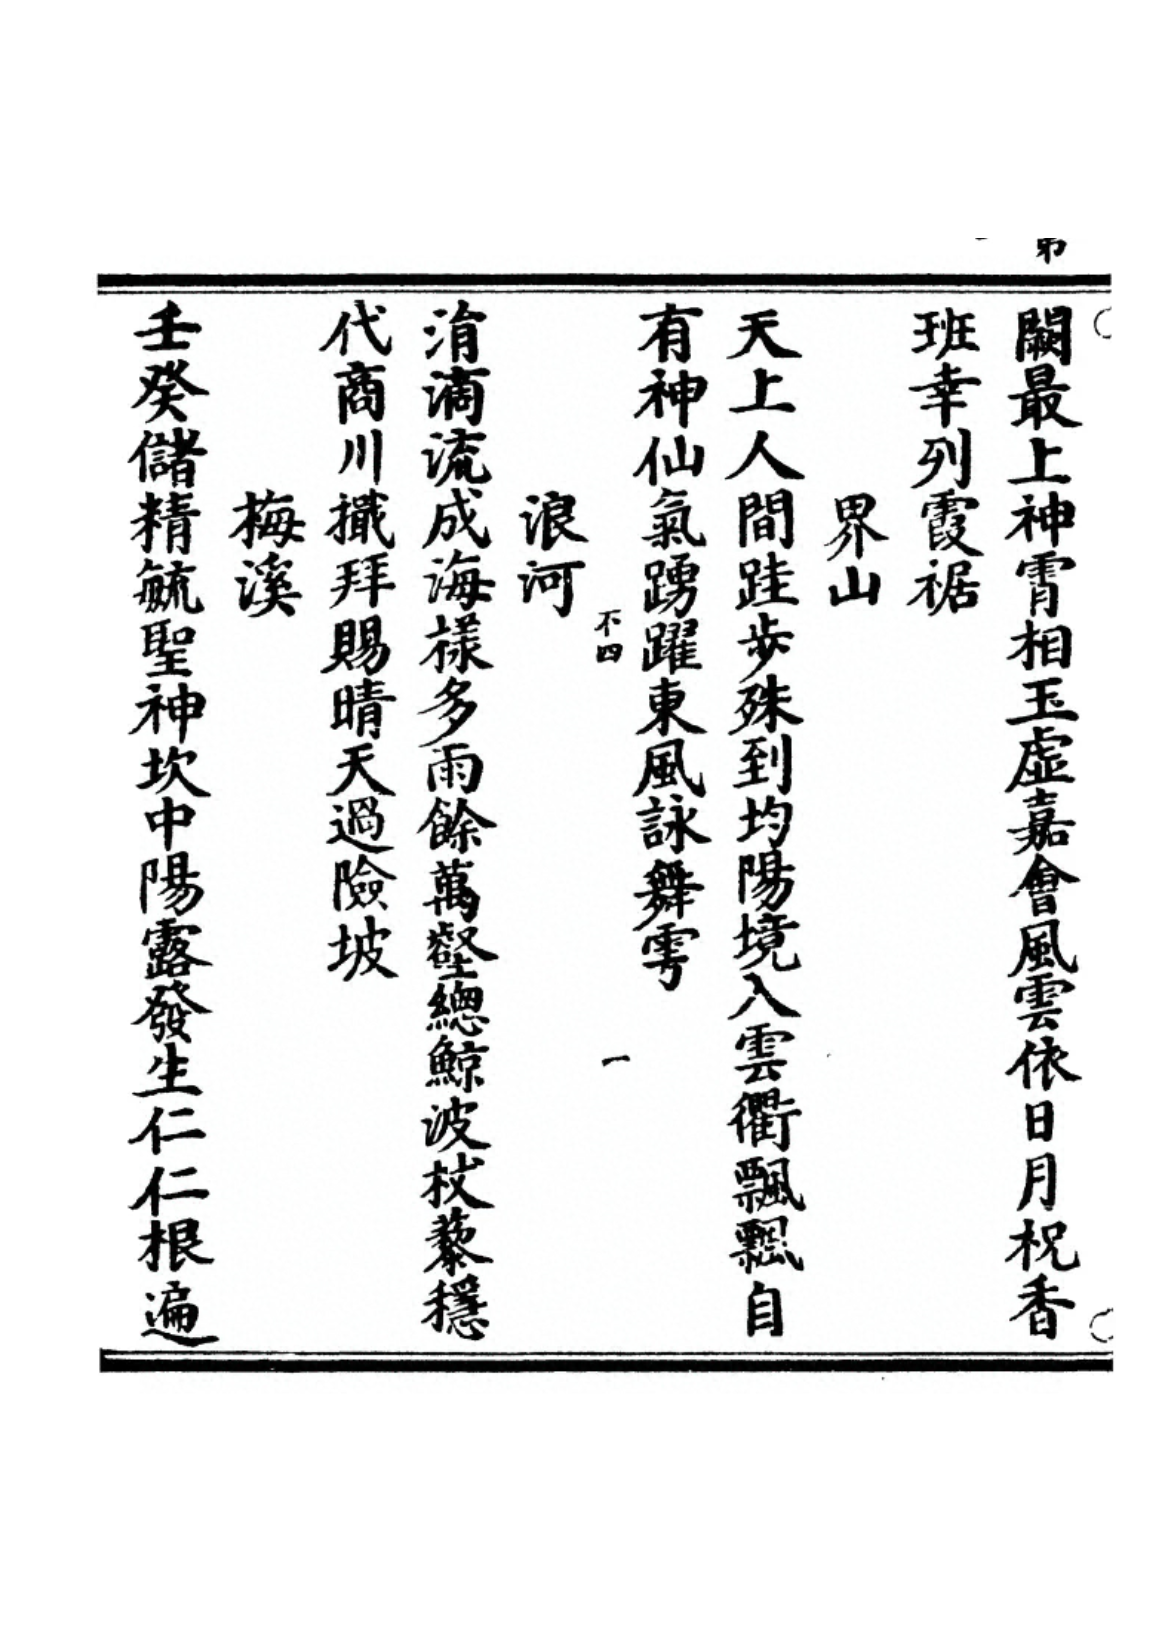 第
闕最上神霄相玉虛嘉會風雲依日月祝香
班幸列霞裾
界山
天上人間跬步殊到均陽境入雲衢飄飄自
有神仙氣踴躍東風詠舞雩
不四
一
浪河
涓滴流成海樣多雨餘萬壑總鯨波杖藜穩
代商川檝拜賜晴天過險坡
梅溪
壬癸儲精毓聖神坎中陽露發生仁仁根遍